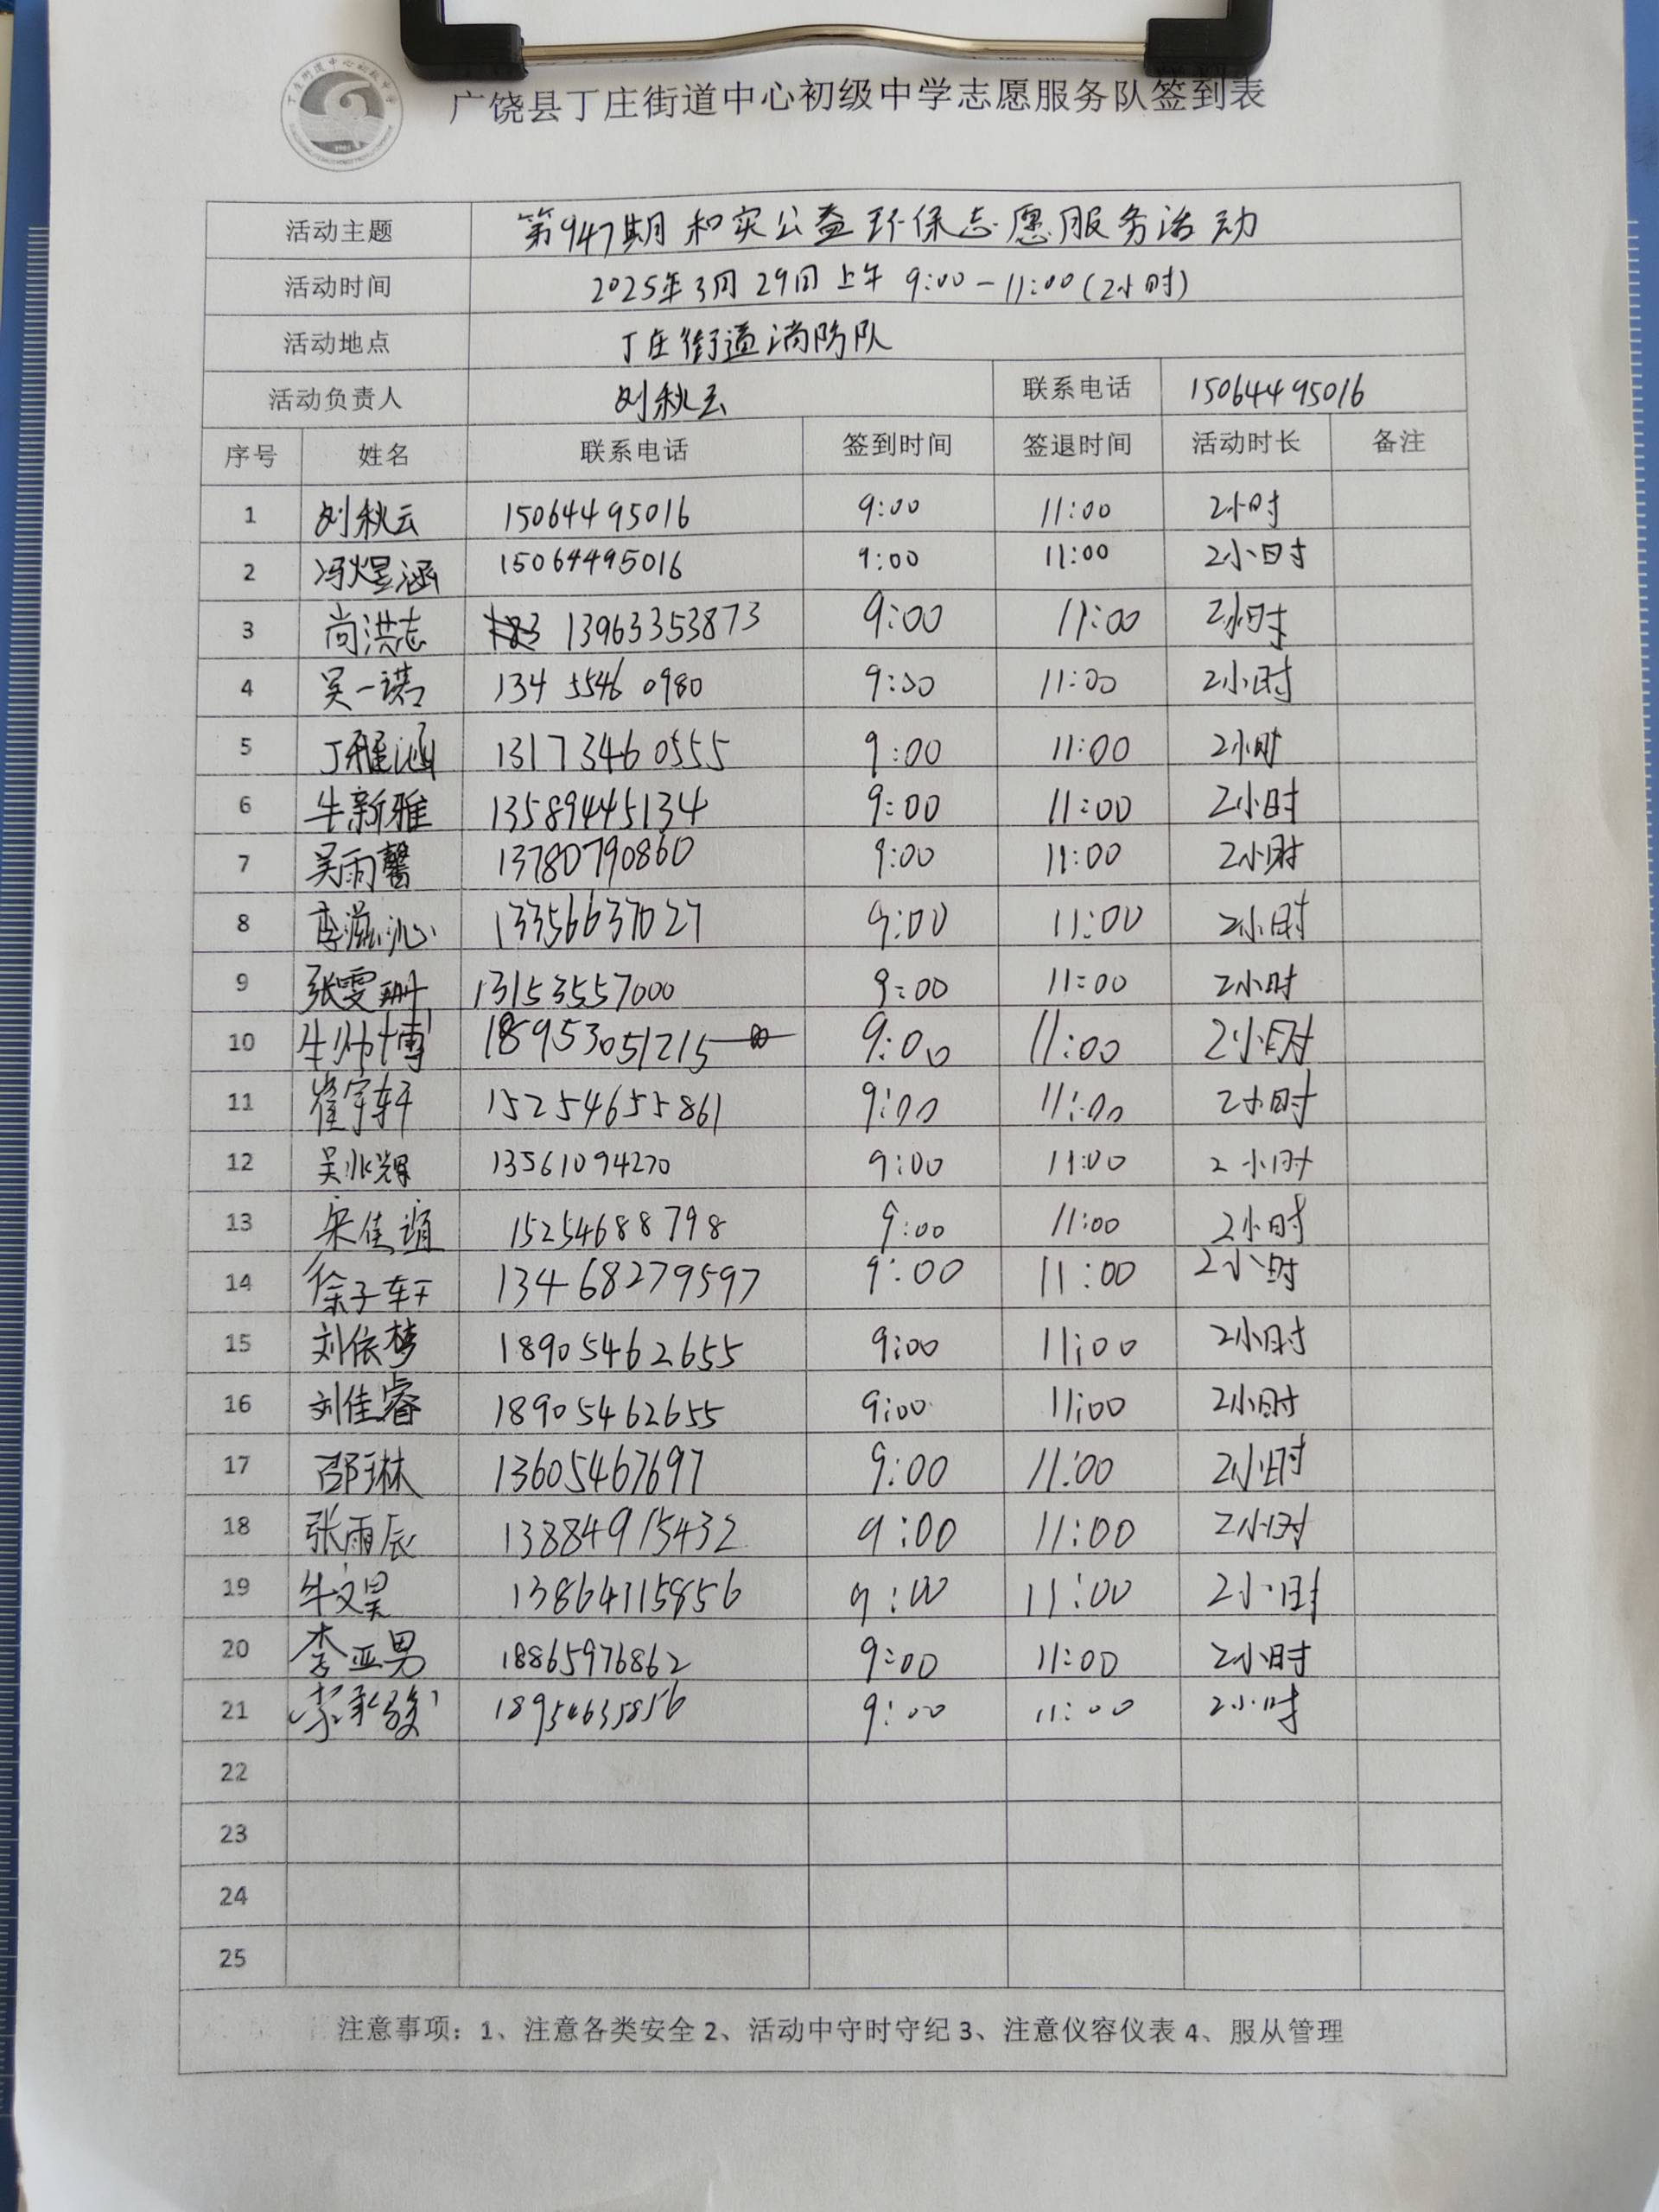 广饶县丁庄街道中心初级中学志愿服务队签到表
活动主题 第947期和实公益环保志愿服务活动
活动时间 2025年3月29日上午 9:00-11:00(2小时)
活动地点 丁庄街道消防队
活动负责人 刘秋云 联系电话 15064495016
序号 姓名 联系电话 签到时间 签退时间 活动时长 备注
1 刘秋云 15064495016 9:00 11:00 2小时
2 冯煜涵 15064495016 9:00 11:00 2小时
3 尚洪志 13963353873 9:00 11:00 2小时
4 吴一诺 134 5546 0980 9:00 11:00 2小时
5 丁雅涵 1317346 0555 9:00 11:00 2小时
6 牛新雅 13589445134 9:00 11:00 2小时
7 吴雨馨 13780790860 9:00 11:00 2小时
8 李滋沁 13356637027 9:00 11:00 2小时
9 张雯珊 13153557000 9:00 11:00 2小时
10 牛帅博 18953051215 9:00 11:00 2小时
11 崔宇轩 15254655861 9:00 11:00 2小时
12 吴兆辉 13561094270 9:00 11:00 2小时
13 宋佳 15254688798 9:00 11:00 2小时
14 徐子轩 13468279597 9:00 11:00 2小时
15 刘依梦 18905462655 9:00 11:00 2小时
16 刘佳睿 18905462655 9:00 11:00 2小时
17 邵琳 13605467697 9:00 11:00 2小时
18 张雨辰 13884915432 9:00 11:00 2小时
19 牛文昊 13864115856 9:00 11:00 2小时
20 李亚男 18865976862 9:00 11:00 2小时
21 李承骏 18954635856 9:00 11:00 2小时
22
23
24
25
注意事项：1、注意各类安全 2、活动中守时守纪 3、注意仪容仪表 4、服从管理